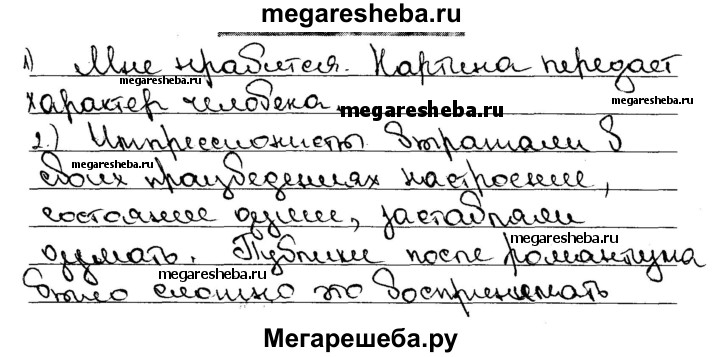 megaresheba.ru
1) Мне нравится. Картина передает
megaresheba.ru
megaresheba.ru
характер человека.
megaresheba.ru
2.) Импрессионисты выражали в
megaresheba.ru
своих произведениях настроение,
состояние души, заставляли
megaresheba.ru
думать. Публики после романтизма
megaresheba.ru
было сложно это воспринимать
Мегарешеба.ру